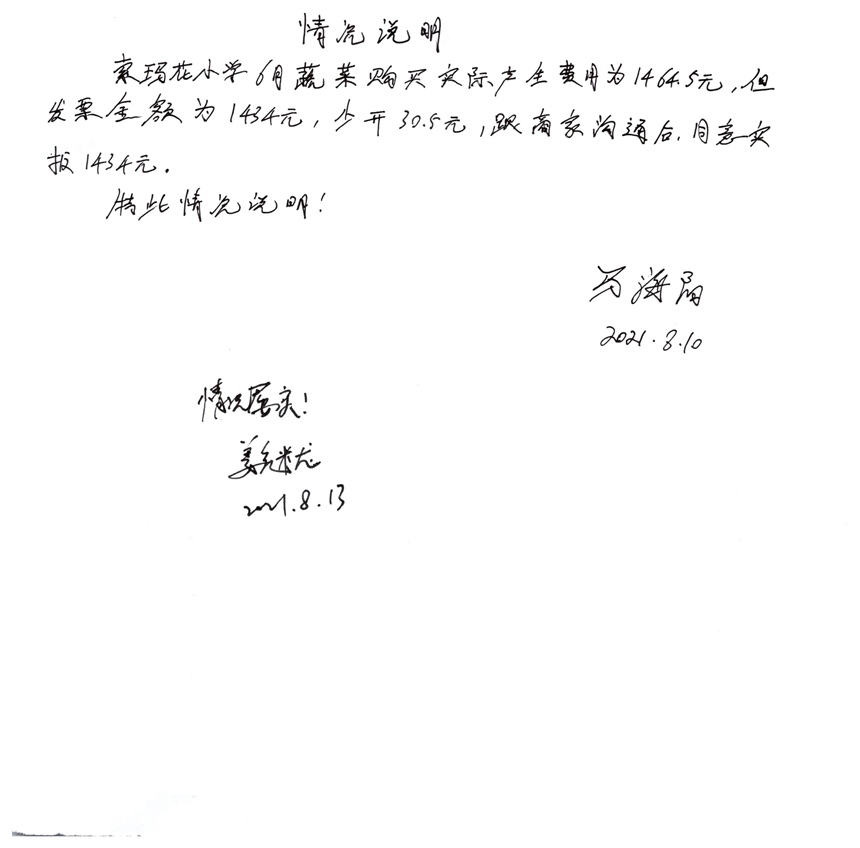 情况说明
索玛花小学6月蔬菜购买实际产生费用为1464.5元,但
发票金额为1434元,少开30.5元,跟商家沟通后,同意实
报1434元。
特此情况说明!
马海
2021.8.10
情况属实!
姜
2021.8.13